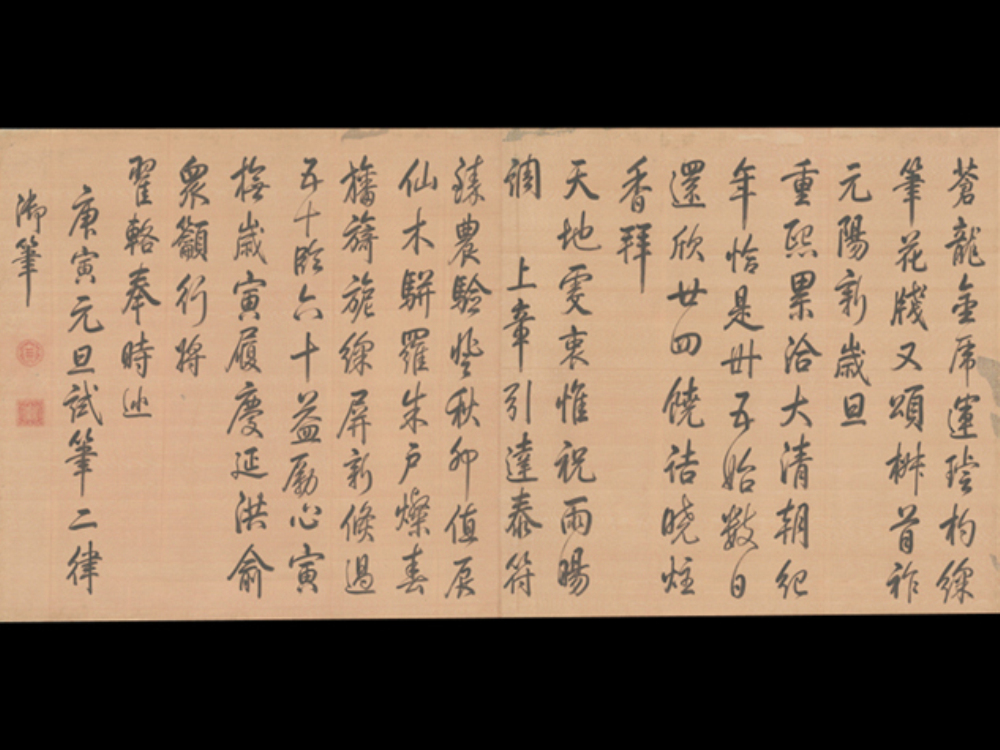 蒼龍金虎運璿杓綵
筆花牋又頌椒首祚
元陽新歲旦
重熙累洽大清朝紀
年恰是卅五始數日
還欣廿四饒詰曉炷
香拜
天地虔衷惟祝雨暘
調 上章引達泰符
臻農驗登秋卯值辰
仙木駢羅朱戶燦春
旛旖旎綵屏新倏過
五十臨六十益勵心寅
撫歲寅履慶延洪俞
衆籲行將
翟輅奉時巡
庚寅元旦試筆二律
御筆